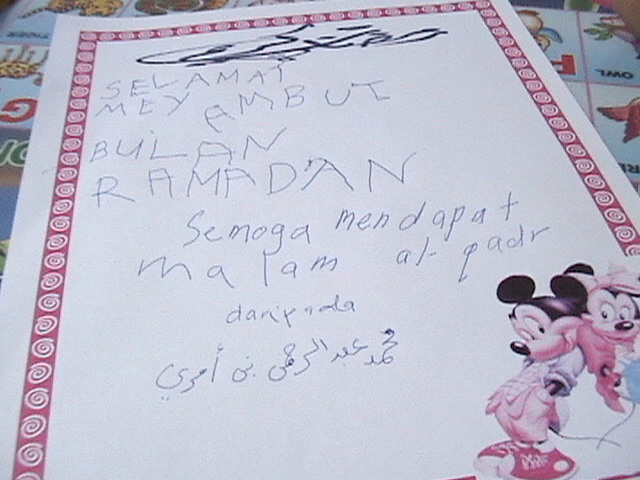 SELAMAT
MEYAMBUT
BULAN
RAMADAN
Semoga mendapat
malam al-qadr
daripada
محمد عبد الرحمن بن أمري
OWL